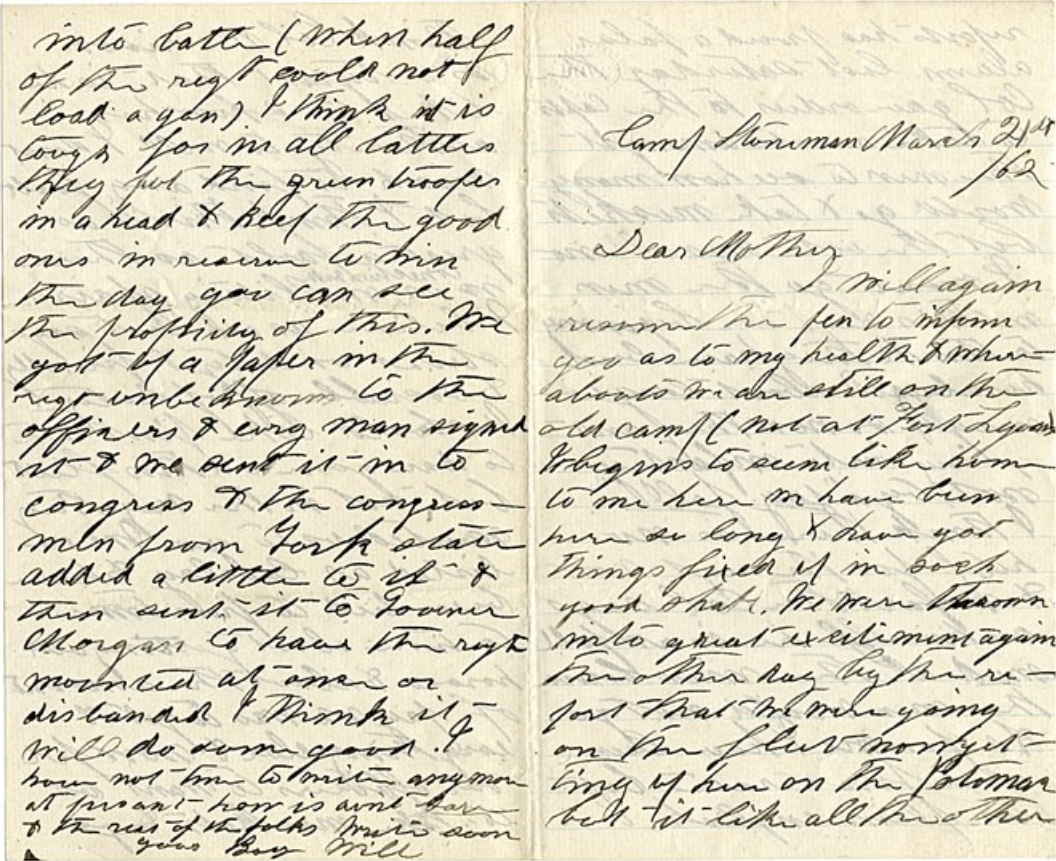 into battle (when half
of the regt could not
load a gun) I think it is
tough for in all battles
they put the green troops
in a head & keep the good
ones in reserve to win
the day you can see
the propriety of this. We
got up a paper in the
regt unbeknown to the
officers & evry man signed
it & we sent it in to
congress & the congress-
men from York state
added a little to it &
then sent it to Govener
Morgan to have the regt
mounted at once or
disbanded I think it
will do some good. I
have not time to write any more
at presant how is aunt
& the rest of the folks Write soon
your Boy Will
Camp Stoneman March 21st
/62
Dear Mother
I will again
resume the pen to inform
you as to my health & where-
abouts we are still on the
old camp (not at Fort Lyon)
It begins to seem like home
to me here we have been
here so long & have got
things fixed up in such
good shape. We were thrown
into great excitement again
the other day by the re-
port that we were going
on the fleet now get-
ting up here on the Potomac
but it like all the other